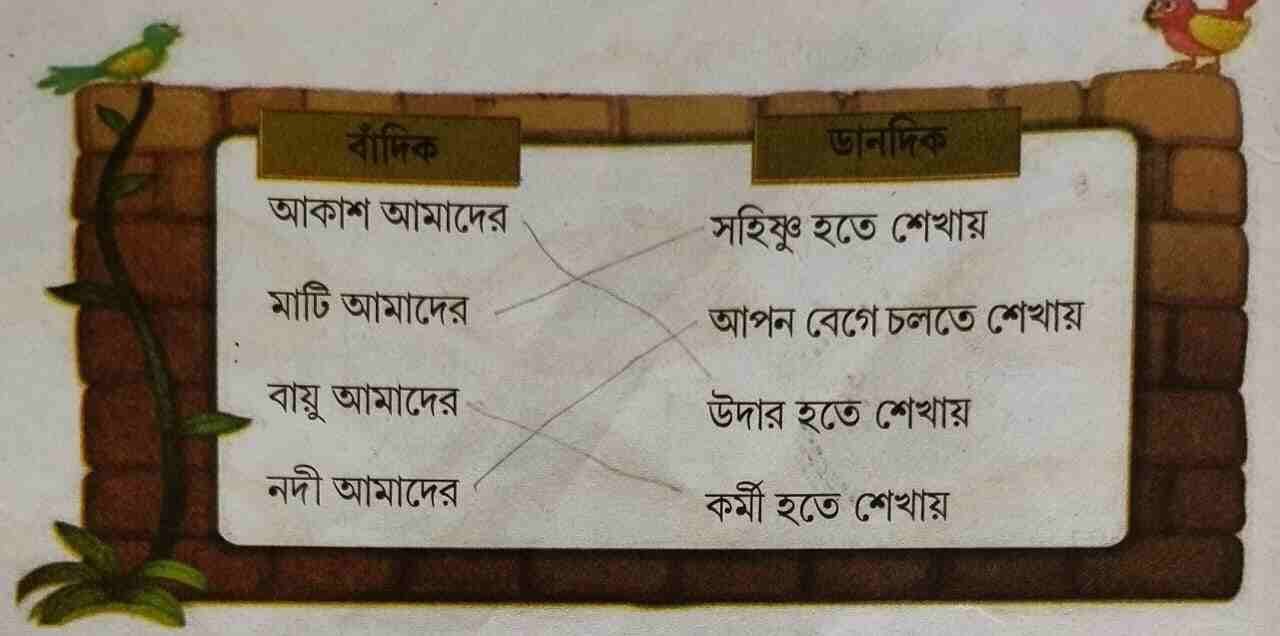 বাঁদিক
আকাশ আমাদের
মাটি আমাদের
বায়ু আমাদের
নদী আমাদের
ডানদিক
সহিষ্ণু হতে শেখায়
আপন বেগে চলতে শেখায়
উদার হতে শেখায়
কর্মী হতে শেখায়